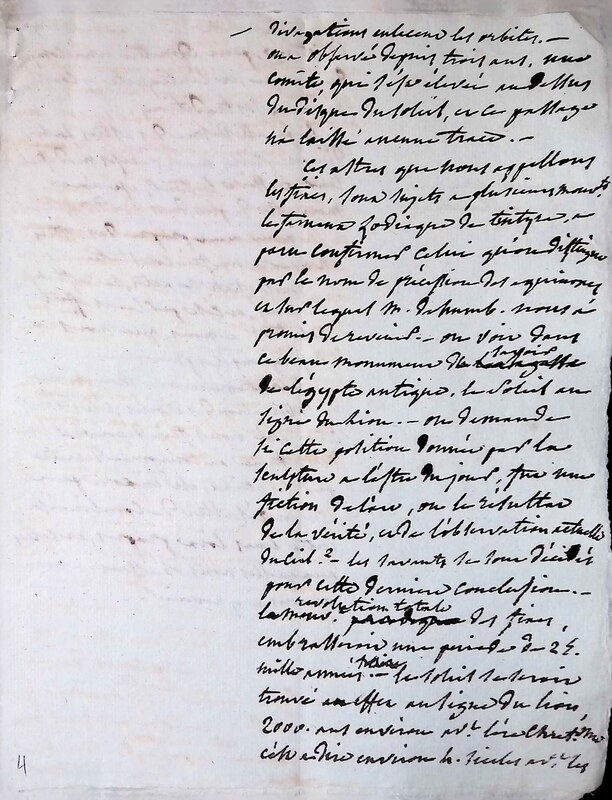 divagations enlacent les orbites. —
on a observé depuis trois ans, une
comète, qui s'est élevée au dessus
du disque du soleil, et ce passage
n'a laissé aucune trace. —
Ces astres que nous appellons
les fixes, sont sujets a plusieurs mouvts.
le fameux Zodiaque de tentyre, a
paru confirmer celui qu'on distingue
par le nom de précession des equinoxes
et sur lequel M. de humb. nous a
promis de revenir. — on voit dans
ce beau monument du savoir
de l'égypte antique, le soleil au
signe du lion. — on demande
si cette position donnée par la
sculpture a l'astre du jour, fut une
fiction de l'art, ou le résultat
de la vérité, et de l'observation actuelle
du ciel? — les savants se sont décidés
pour cette derniere conclusion. —
la révolution totale des fixes,
embrasseroit une periode de 25.
mille années. — le soleil se seroit
trouvé en effet au signe du lion
2000. ans environ avt. l'ère chretne.
c'est a dire environ 4. siecles avt. les
4